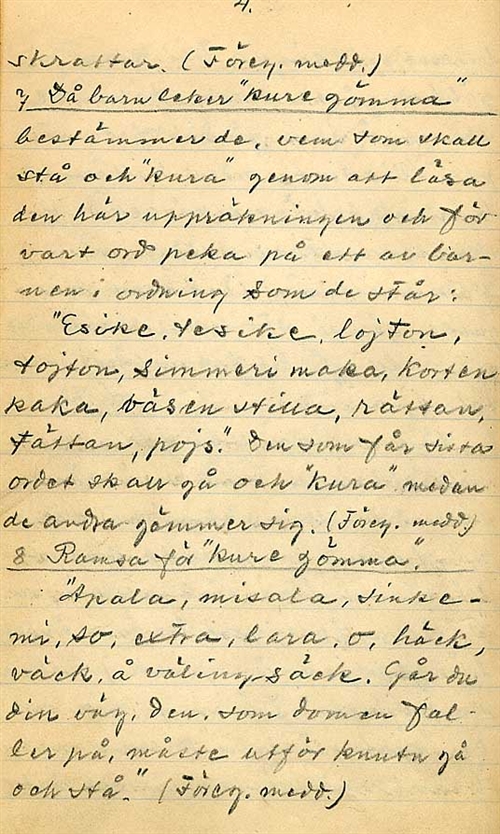 4.
skrattar. (Föreg. medd.)
7 Då barn leker "kure gömma"
bestämmer de, vem som skall
stå och "kura" genom att läsa
den här uppräkningen och för
vart ord peka på ett av bar-
nen i ordning som de står:
"Esike, tesike, lojton,
tojton, simmeri maka, korten
kaka, väsen stilla, rättan,
tättan, pojs." Den som får sista
ordet skall gå och "kura" medan
de andra gömmer sig. (Föreg. medd.)
8 Ramsa för "kure gömma".
"Apala, misala, sinke-
mi, so, extra, lara, o, häck,
väck, å väling, säck. Går du
din väg. Den, som domen fal-
ler på, måste utför knuten gå
och stå." (Föreg. medd.)